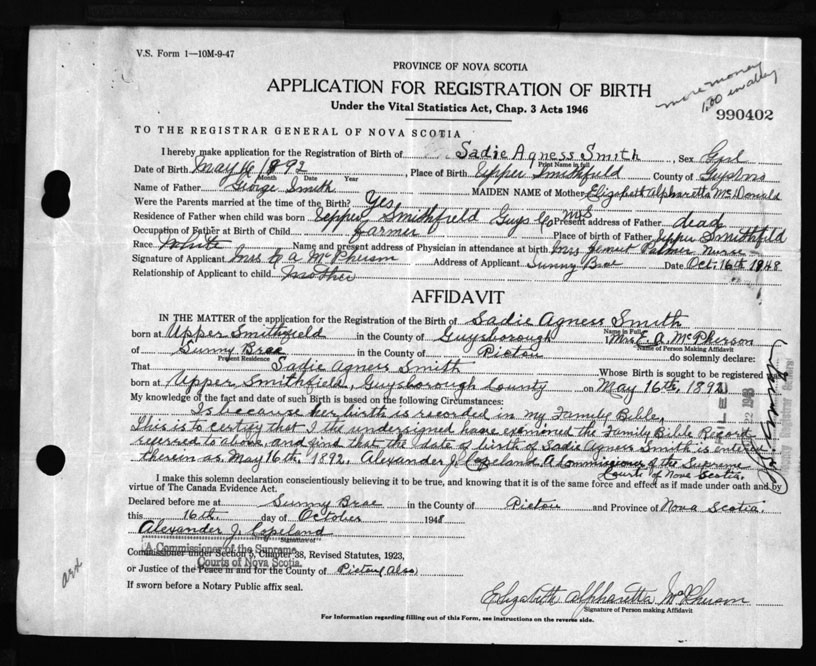 V.S. Form 1—10M-9-47
PROVINCE OF NOVA SCOTIA
APPLICATION FOR REGISTRATION OF BIRTH
more money
1.00
Under the Vital Statistics Act, Chap. 3 Acts 1946
990402
TO THE REGISTRAR GENERAL OF NOVA SCOTIA
I hereby make application for the Registration of Birth of Sadie Agness Smith, Sex Girl
Print Name in full
Date of Birth May 16 1892, Place of Birth Upper Smithfield County of
Month Day Year
Name of Father George Smith MAIDEN NAME of Mother Elizabeth Alpharetta McDonald
Were the Parents married at the time of the Birth? Yes
Residence of Father when child was born Upper Smithfield Guys Co N.S Present address of Father dead
Occupation of Father at Birth of Child farmer Place of Birth of Father Upper Smithfild
Race White Name and present address of Physician in attendance at birth Mrs Palmer Nurse
Signature of Applicant Mrs E A McPherson Address of Applicant Sunny Brae Date Oct. 16th 1948
Relationship of Applicant to child Mother
AFFIDAVIT
IN THE MATTER of the application for the Registration of the Birth of Sadie Agness Smith
Name in Full
born at Upper Smithfield in the County of Guysborough Mrs. E. A. McPherson
Name of Person Making Affidavit
of Sunny Brae in the County of Pictou do solemnly declare:
Present Residence
That Sadie Agness Smith Whose Birth is sought to be registered was
born at Upper Smithfield, Guysborough County on May 16th, 1892
My knowledge of the fact and date of such Birth is based on the following Circumstances:
Is because her birth is recorded in my Family Bible,
This is to certify that I the undersigned have examined the Family Bible Record
referred to above, and find that the date of birth of Sadie Agness Smith is entered
therein as May 16th, 1892. Alexander J. Copeland. A Commissioner of the Supreme
Courts of Nova Scotia.
I make this solemn declaration conscientiously believing it to be true, and knowing that it is of the same force and effect as if made under oath and by
virtue of The Canada Evidence Act.
Declared before me at Sunny Brae in the County of Pictou and Province of Nova Scotia.
this 16th. day of October 1948
Alexander J. Copeland
Signature of
A Commissioner of the Supreme
Commissioner under Section 5, Chapter 38, Revised Statutes, 1923,
Courts of Nova Scotia.
or Justice of the Peace in and for the County of Pictou (Also)
If sworn before a Notary Public affix seal.
Elizabeth Alpharetta McPherson
Signature of Person making Affidavit
For Information regarding filling out of this Form, see instructions on the reverse side.